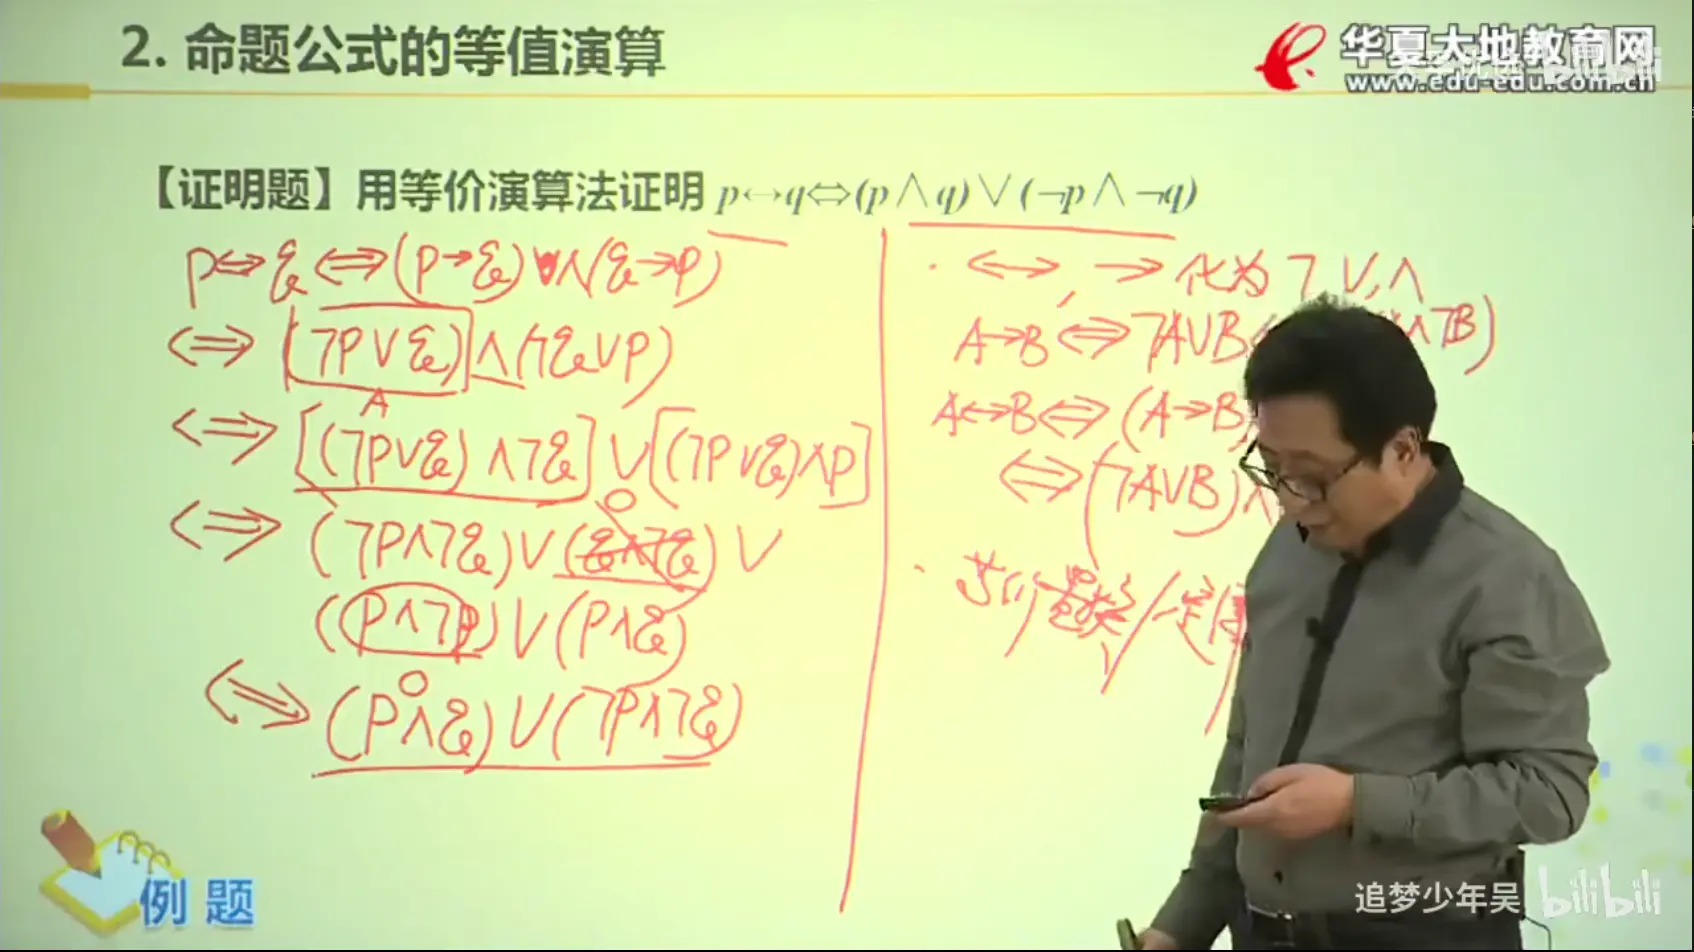 2. 命题公式的等值演算
华夏大地教育网
www.edu-edu.com.cn
bilibili
【证明题】用等价演算法证明 p↔q⇔(p∧q)∨(¬p∧¬q)
p↔q⇔(p→q)∧(q→p)
⇔ (¬p∨q)∧(¬q∨p)
A
⇔ [(¬p∨q)∧¬q]∨[(¬p∨q)∧p]
⇔ (¬p∧¬q)∨(q∧¬q)∨
0
(p∧¬p)∨(p∧q)
0
⇔ (p∧q)∨(¬p∧¬q)
· ↔, → 化为 ¬ ∨, ∧
A→B⇔¬A∨B ∧¬B)
A↔B⇔(A→B)
⇔(¬A∨B)∧
置换
例题
追梦少年吴 bilibili